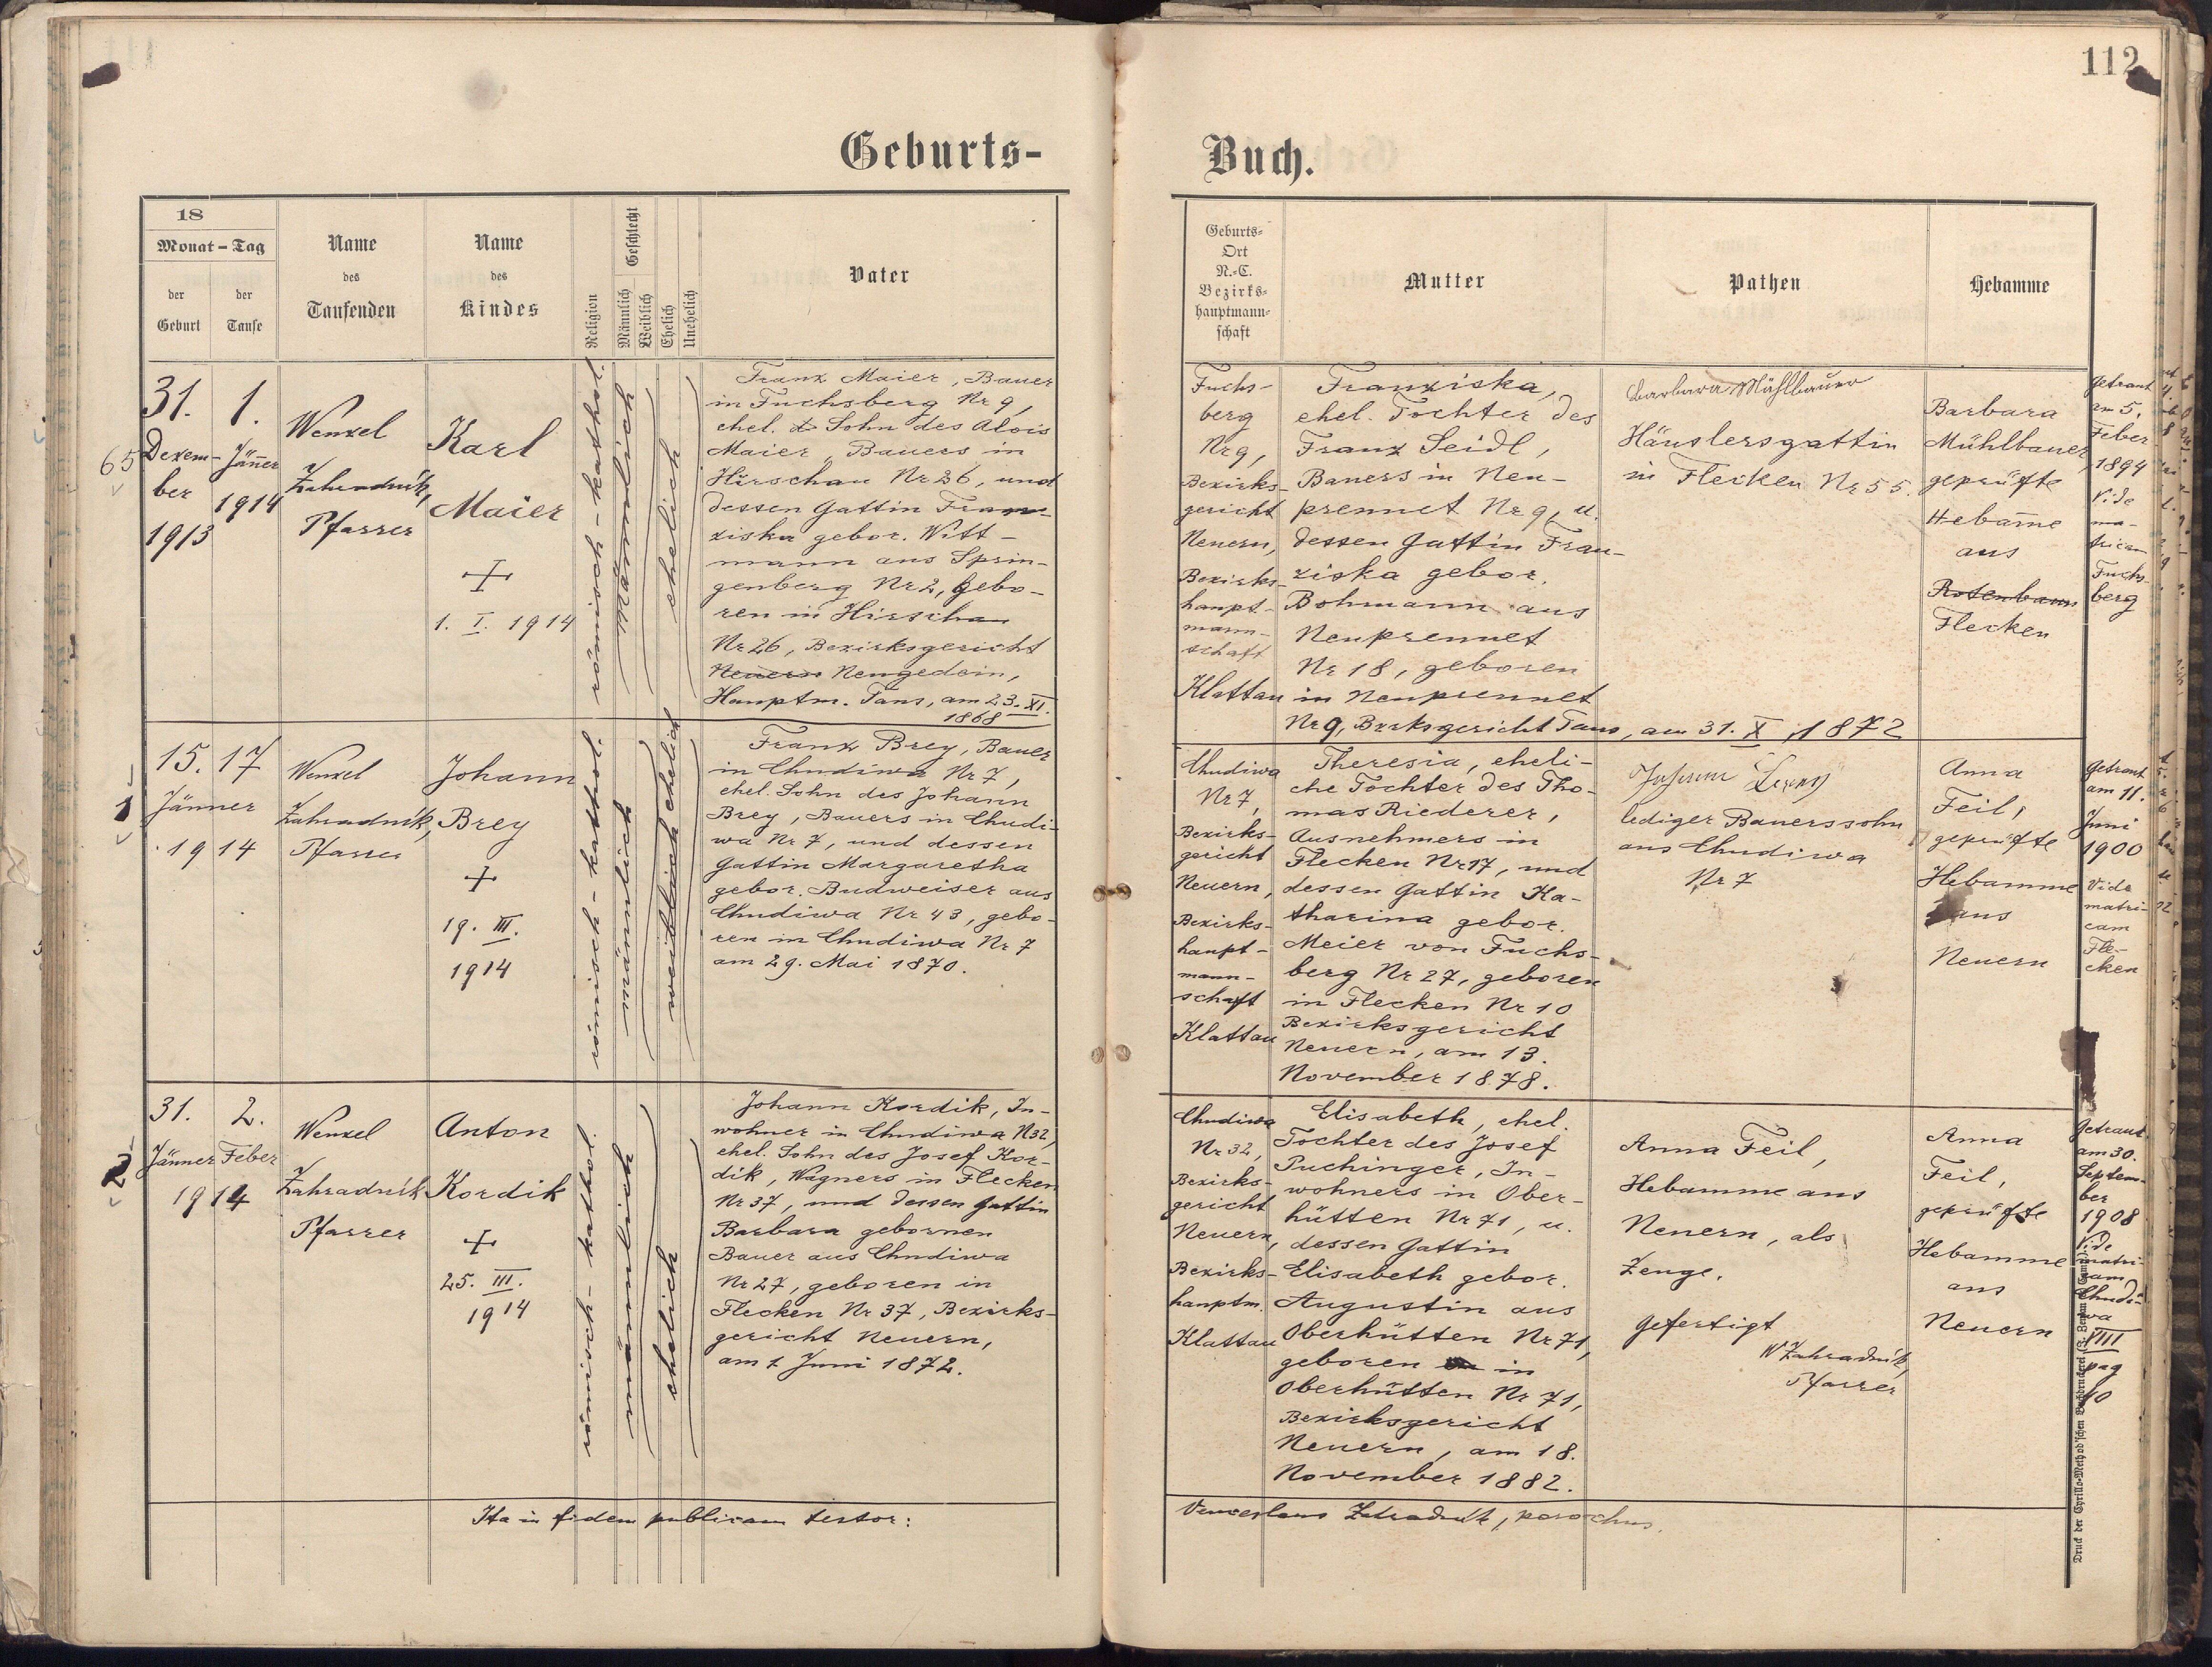 112
Geburts-
Buch.
18
Monat - Tag
der
Geburt
der
Taufe
Name
des
Taufenden
Name
des
Kindes
Religion
Geschlecht
Männlich
Weiblich
Ehelich
Unehelich
Vater
Geburts-
Ort
N.-C.
Bezirks-
hauptmann-
schaft
Mutter
Pathen
Hebamme
65
31.
Dezem-
ber
1913
1.
Jänner
1914
Wenzel
Zahradník,
Pfarrer
Karl
Maier
+
1. I. 1914
römisch-kathol.
männlich
ehelich
Franz Maier, Bauer
in Fuchsberg Nr 9,
ehel. Sohn des Alois
Maier, Bauers in
Hirschau Nr 26, und
dessen Gattin Fran-
ziska gebor. Witt-
mann aus Sprin-
genberg Nr 2, gebo-
ren in Hirschau
Nr 26, Bezirksgericht
Neuern Neugedein,
Hauptm. Taus, am 23. XI.
1868
Fuchs-
berg
Nr 9,
Bezirks-
gericht
Neuern,
Bezirks-
haupt-
mann-
schaft
Klattau
Franziska,
ehel. Tochter des
Franz Seidl,
Bauers in Neu-
prennet Nr 9, u.
dessen Gattin Fran-
ziska gebor.
Bohmann aus
Neuprennet
Nr 18, geboren
in Neuprennet
Nr 9, Bzrksgericht Taus, am 31. X. 1872
Barbara Mühlbauer
Häuslersgattin
in Flecken Nr 55.
Barbara
Mühlbauer,
geprüfte
Hebam̄e
aus
Rotenbaum
Flecken
Getraut
am 5.
Feber
1894
Vide
ma-
tricam
Fuchs-
berg
1
15.
17
Jänner
1914
Wenzel
Zahradník,
Pfarrer
Johann
Brey
+
19. III.
1914
römisch-kathol.
männlich
weiblich ehelich
Franz Brey, Bauer
in Chudiwa Nr 7,
ehel. Sohn des Johann
Brey, Bauers in Chudi-
wa Nr 7, und dessen
Gattin Margaretha
gebor. Budweiser aus
Chudiwa Nr 43, gebo-
ren in Chudiwa Nr 7
am 29. Mai 1870.
Chudiwa
Nr 7,
Bezirks-
gericht
Neuern,
Bezirks-
haupt-
mann-
schaft
Klattau
Theresia, eheli-
che Tochter des Tho-
mas Riederer,
Ausnehmers in
Flecken Nr 17, und
dessen Gattin Ka-
tharina gebor.
Meier von Fuchs-
berg Nr 27, geboren
in Flecken Nr 10
Bezirksgericht
Neuern, am 13.
November 1878.
Johann
lediger Bauerssohn
aus Chudiwa
Nr 7
Anna
Feil,
geprüfte
Hebamme
aus
Neuern
Getraut
am 11.
Juni
1900
Vide
matri-
cam
Fle-
cken
2
31.
Jänner
2.
Feber
1914
Wenzel
Zahradník
Pfarrer
Anton
Kordik
+
25. III.
1914
römisch-kathol.
männlich
ehelich
Johann Kordik, In-
wohner in Chudiwa N32,
ehel. Sohn des Josef Kor-
dik, Wagners in Flecken
Nr 37, und dessen Gattin
Barbara gebornen
Bauer aus Chudiwa
Nr 27, geboren in
Flecken Nr 37, Bezirks-
gericht Neuern,
am 1. Juni 1872.
Chudiwa
Nr 32,
Bezirks-
gericht
Neuern,
Bezirks-
hauptm.
Klattau
Elisabeth, ehel.
Tochter des Josef
Puchinger, In-
wohners in Ober-
hütten Nr 71, u.
dessen Gattin
Elisabeth gebor.
Augustin aus
Oberhütten Nr 71,
geboren in
Oberhütten Nr 71,
Bezirksgericht
Neuern, am 18.
November 1882.
Anna Feil,
Hebamme aus
Neuern, als
Zeuge.
Gefertigt
W Zahradník,
Pfarrer
Anna
Feil,
geprüfte
Hebamme
aus
Neuern
Getraut
am 30.
Septem-
ber
1908
Vide
matri-
cam
Chudi-
wa
VIII
pag
40
Ita in fidem publicam testor:
Venceslaus Zahradník, parochus.
Druck der Cyrillo-Method'schen Buchdruckerei